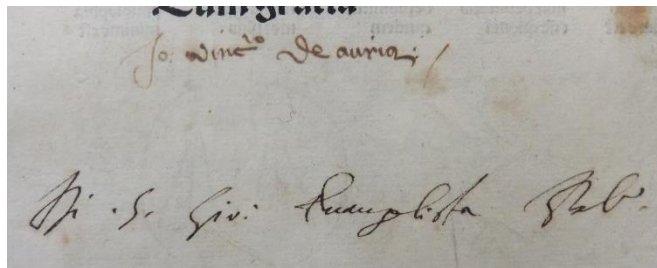 Cum gratia
Jo. vinc.io de auria;
Di .S. Gio: Euangelista